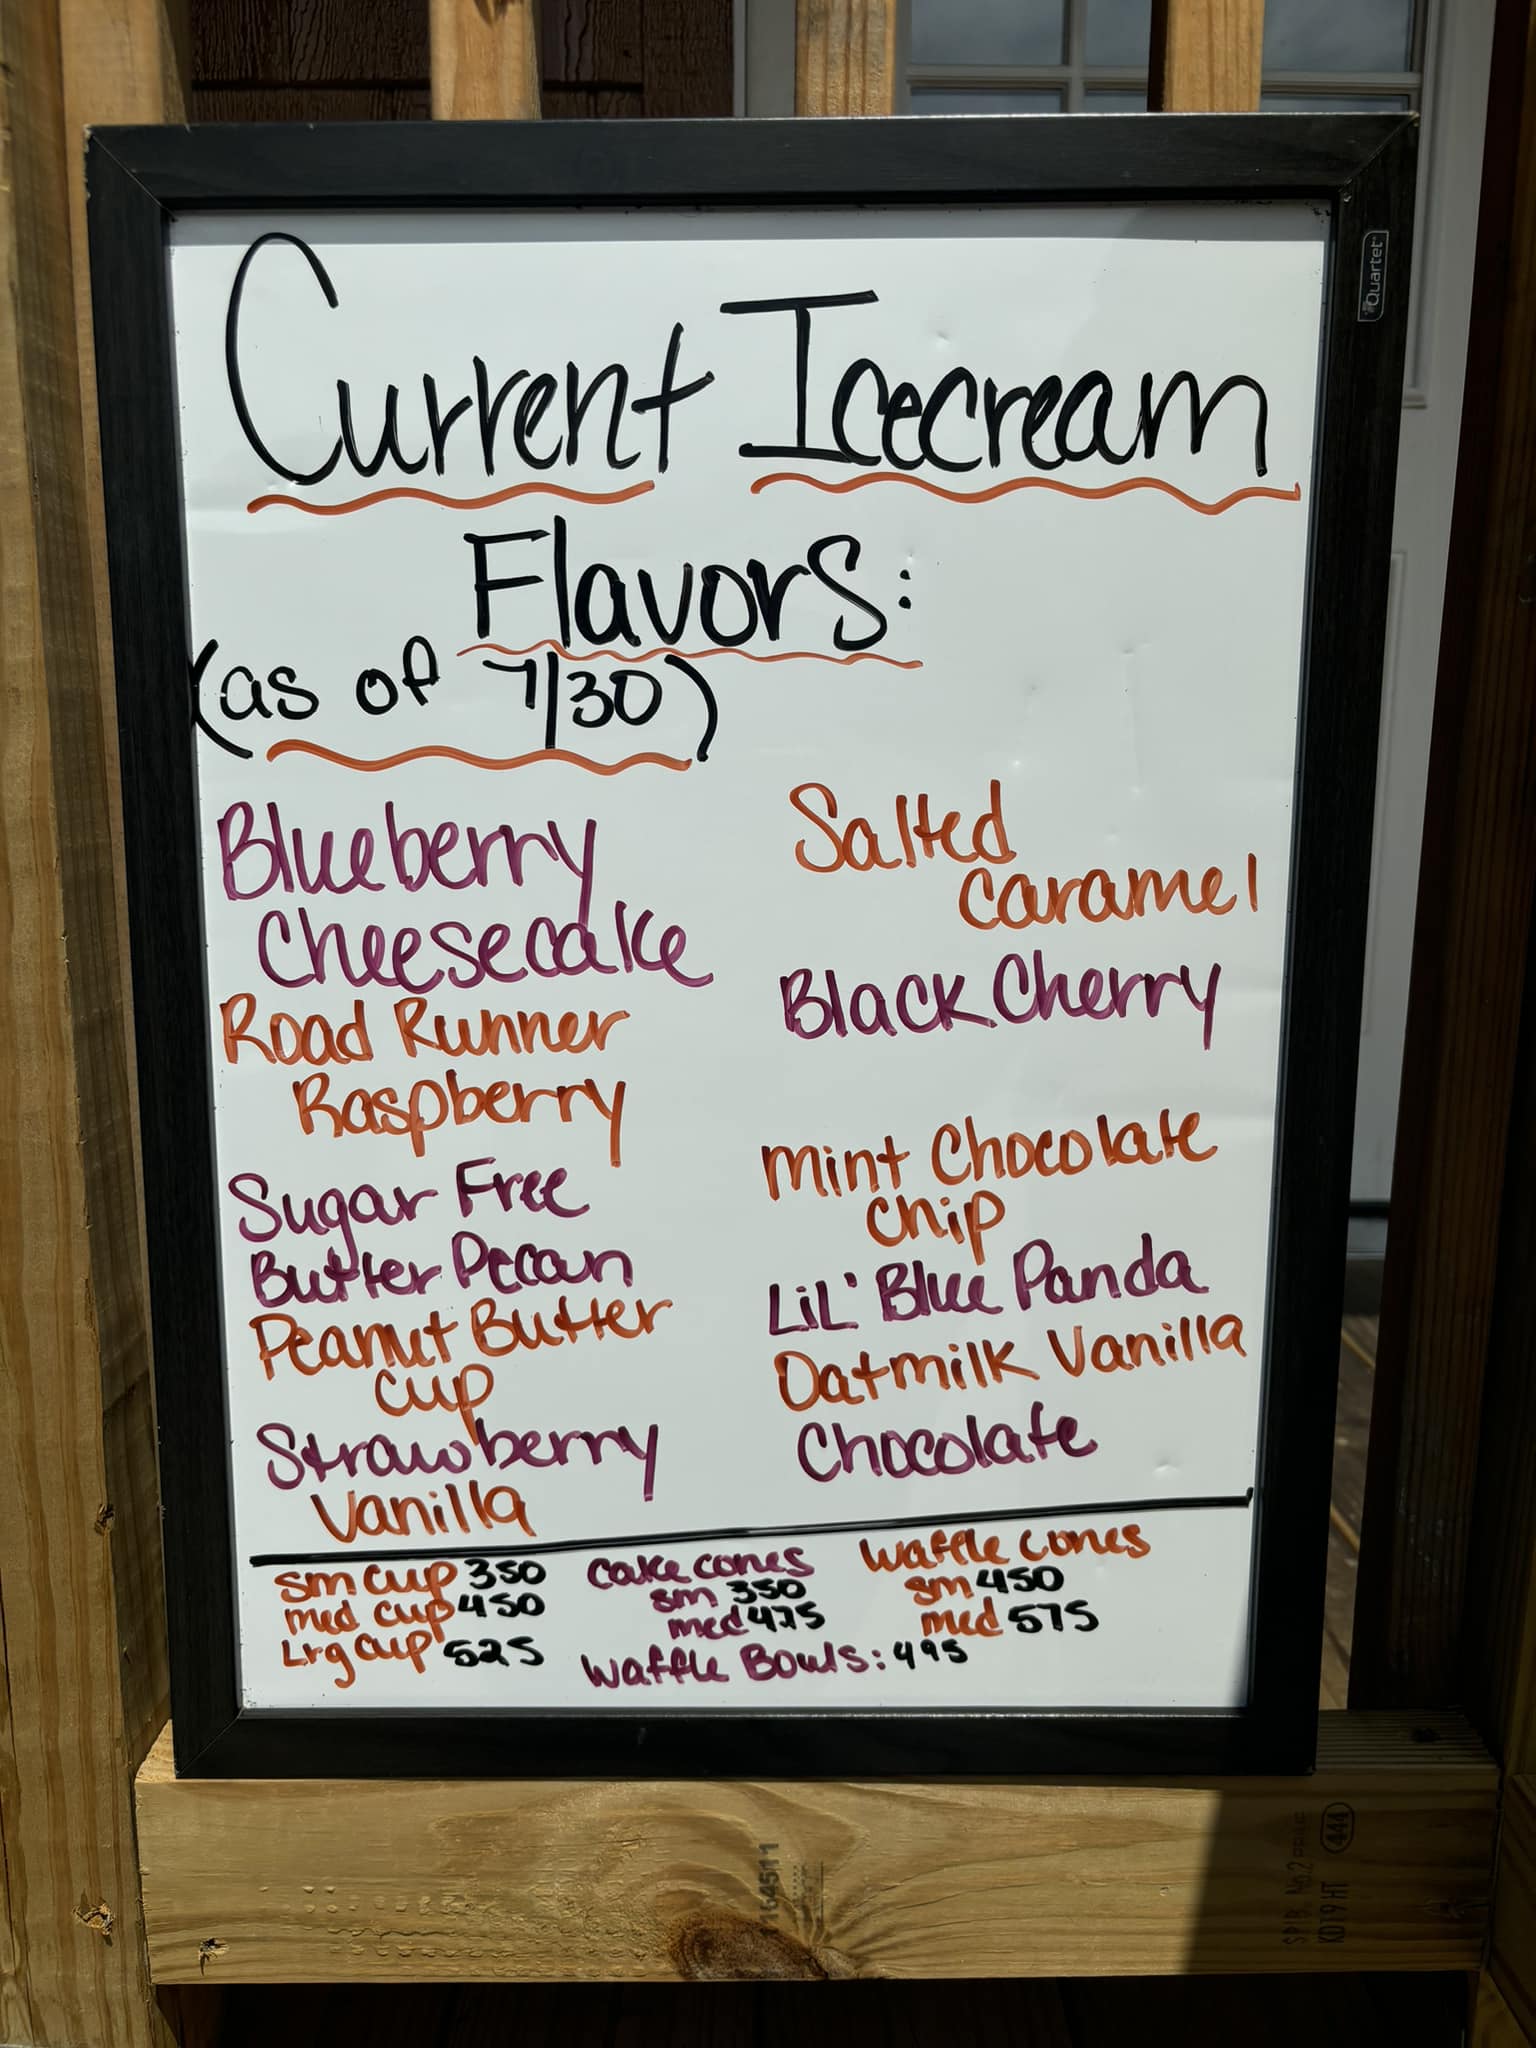 Quartet
Current Icecream
Flavors:
(as of 7/30)
Blueberry
Cheesecake
Road Runner
Raspberry
Sugar Free
Butter Pecan
Peanut Butter
Cup
Strawberry
Vanilla
Salted
Caramel
Black Cherry
Mint Chocolate
Chip
LiL' Blue Panda
Oatmilk Vanilla
Chocolate
sm cup 350
med cup 450
Lrg cup 525
cake cones
sm 350
med 475
waffle cones
sm 450
med 575
waffle Bowls: 495
164511
SPIB No.2
KD19 HT
444